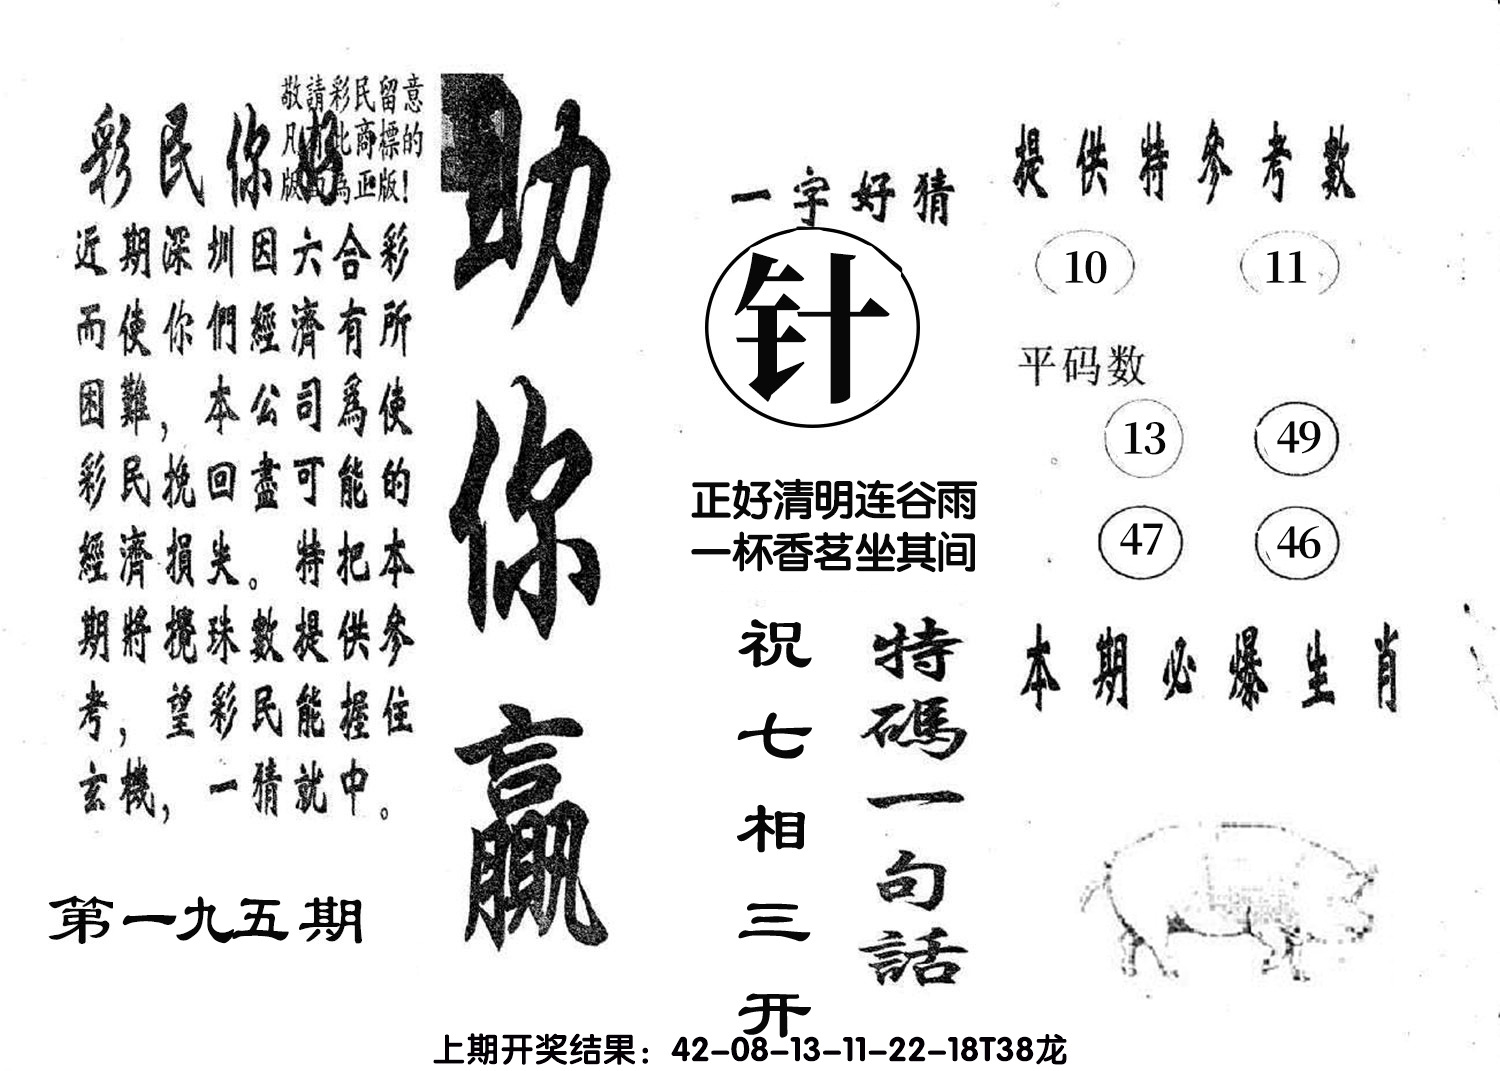 敬請彩民留意
凡有此商標的
版面為正版!
彩民你好
近期深圳因六合彩
而使你們經濟有所
困難，本公司爲使
彩民挽回盡可能的
經濟損失。特把本
期將攪珠數提供參
考，望彩民能握住
玄機，一猜就中。
第一九五期
助你贏
一字好猜
针
正好清明连谷雨
一杯香茗坐其间
特碼一句話
祝七相三开
提供特參考數
10 11
平码数
13 49
47 46
本期必爆生肖
上期开奖结果：42-08-13-11-22-18T38龙